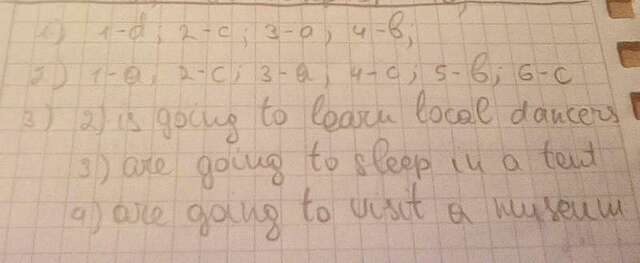 1) 1-d; 2-c; 3-a; 4-b;
2) 1-a; 2-c; 3-a; 4-c; 5-b; 6-c
3) 2) is going to learn local dancers
3) are going to sleep in a tent
4) are going to visit a museum